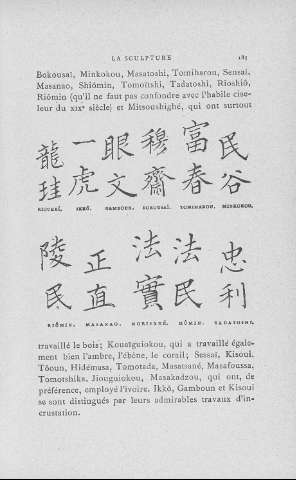 LA SCULPTURE 185
Bokousaï, Minkokou, Masatoshi, Tomiharou, Sensaï,
Masanao, Shiômin, Tomotshi, Tadatoshi, Rioshiô,
Riômin (qu'il ne faut pas confondre avec l'habile cise-
leur du XIXe siècle) et Mitsoushighé, qui ont surtout
龍珪 一虎 眼文 穆齋 富春 民谷
IKKÔ. GAMBOUN. BOKOUSAÏ. TOMIHAROU. MINKOKOU.
陵民 正直 法實 法民 忠利
RIÔMIN. MASANAO. HÔMIN. TADATOSHI.
travaillé le bois; Kouaïguiokou, qui a travaillé égale-
ment bien l'ambre, l'ébène, le corail; Sessaï, Kisoui,
Tôoun, Hidémasa, Tomotada, Masatsané, Masafoussa,
Tomotshika, Jiouguiokou, Masakadzou, qui ont, de
préférence, employé l'ivoire. Ikkô, Gamboun et Kisoui
se sont distingués par leurs admirables travaux d'in-
crustation.